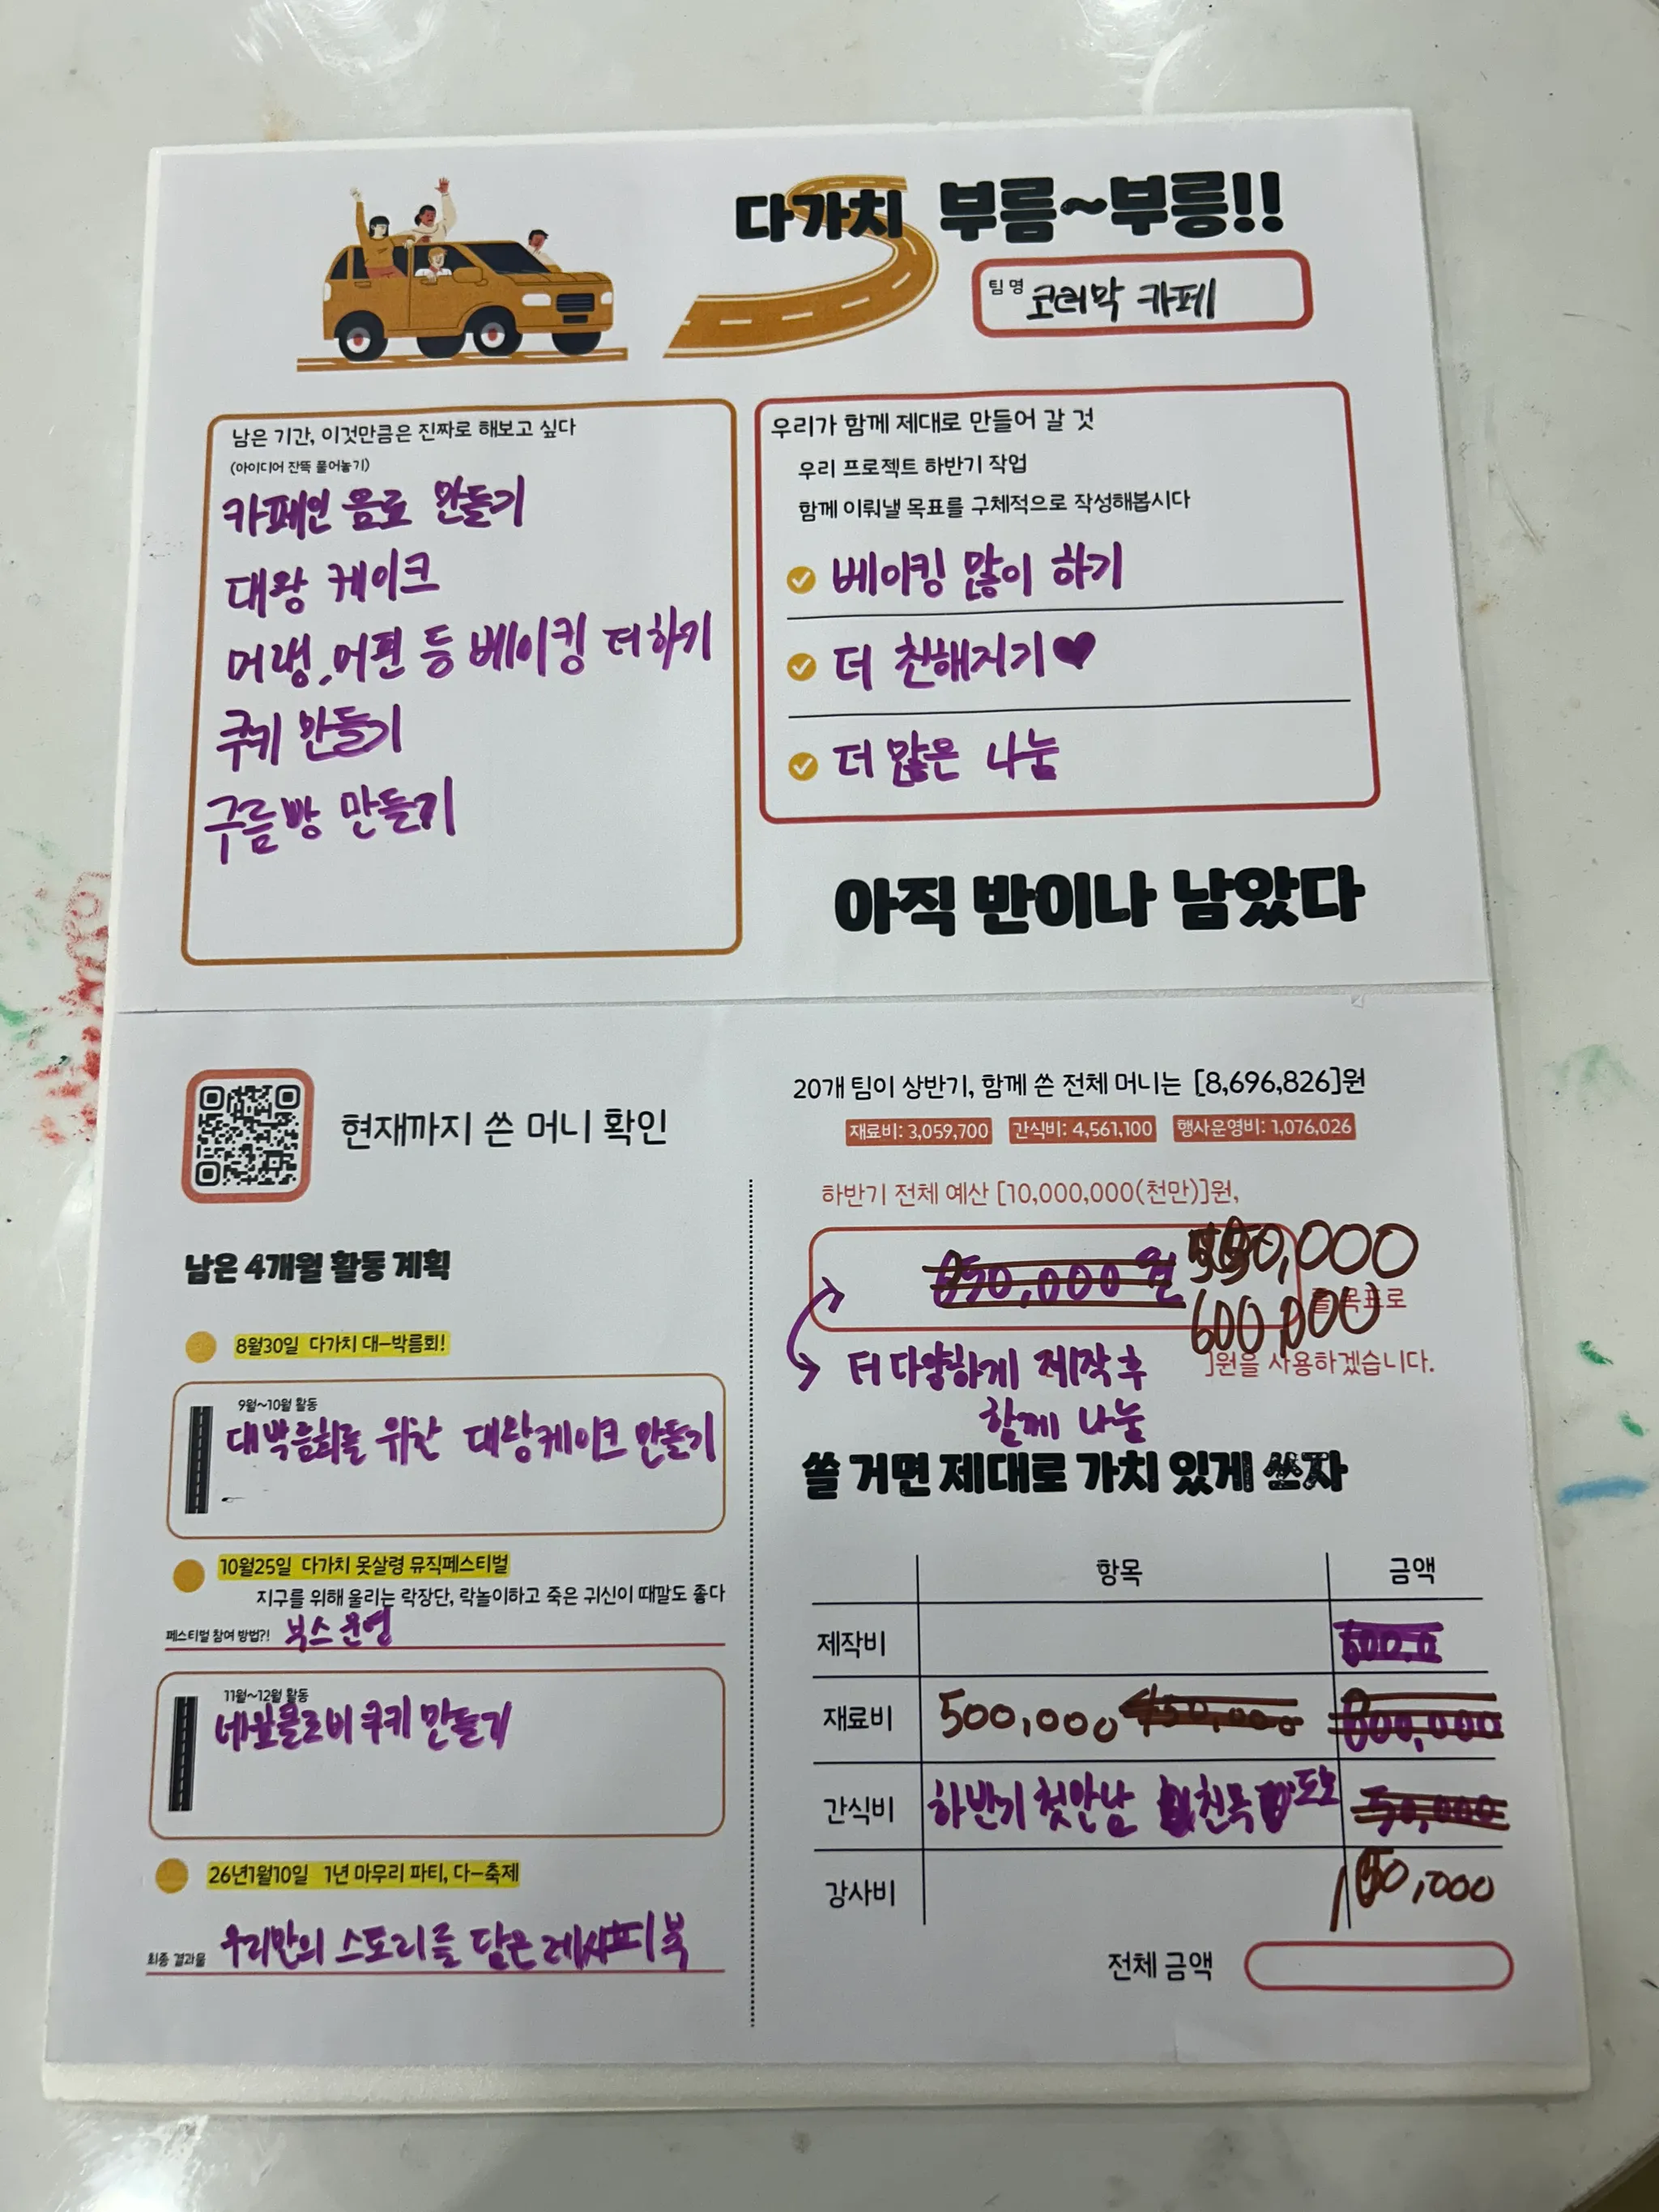 다가치 부릉~부릉!!
팀명 코러막 카페
남은 기간, 이것만큼은 진짜로 해보고 싶다
(아이디어 잔뜩 풀어놓기)
카페인 음료 만들기
대왕 케이크
머랭, 머핀 등 베이킹 더하기
쿠키 만들기
구름빵 만들기
우리가 함께 제대로 만들어 갈 것
우리 프로젝트 하반기 작업
함께 이뤄낼 목표를 구체적으로 작성해봅시다
베이킹 많이 하기
더 친해지기♥
더 많은 나눔
아직 반이나 남았다
현재까지 쓴 머니 확인
남은 4개월 활동 계획
8월30일 다가치 대-박름회!
9월~10월 활동
대박름회를 위한 대왕케이크 만들기
10월25일 다가치 못살령 뮤직페스티벌
지구를 위해 울리는 락장단, 락놀이하고 죽은 귀신이 때깔도 좋다
페스티벌 참여 방법?! 부스 운영
11월~12월 활동
네잎클로버 쿠키 만들기
26년1월10일 1년 마무리 파티, 다-축제
최종 결과물 우리만의 스토리를 담은 레시피북
20개 팀이 상반기, 함께 쓴 전체 머니는 [8,696,826]원
재료비: 3,059,700 간식비: 4,561,100 행사운영비: 1,076,026
하반기 전체 예산 [10,000,000(천만)]원,
650,000원
600,000 를 목표로
]원을 사용하겠습니다.
더 다양하게 제작 후
함께 나눔
쓸 거면 제대로 가치 있게 쓰자
항목 금액
제작비
재료비 500,000 450,000 600,000
간식비 하반기 첫만남 친목 도모 50,000
강사비 100,000
전체 금액